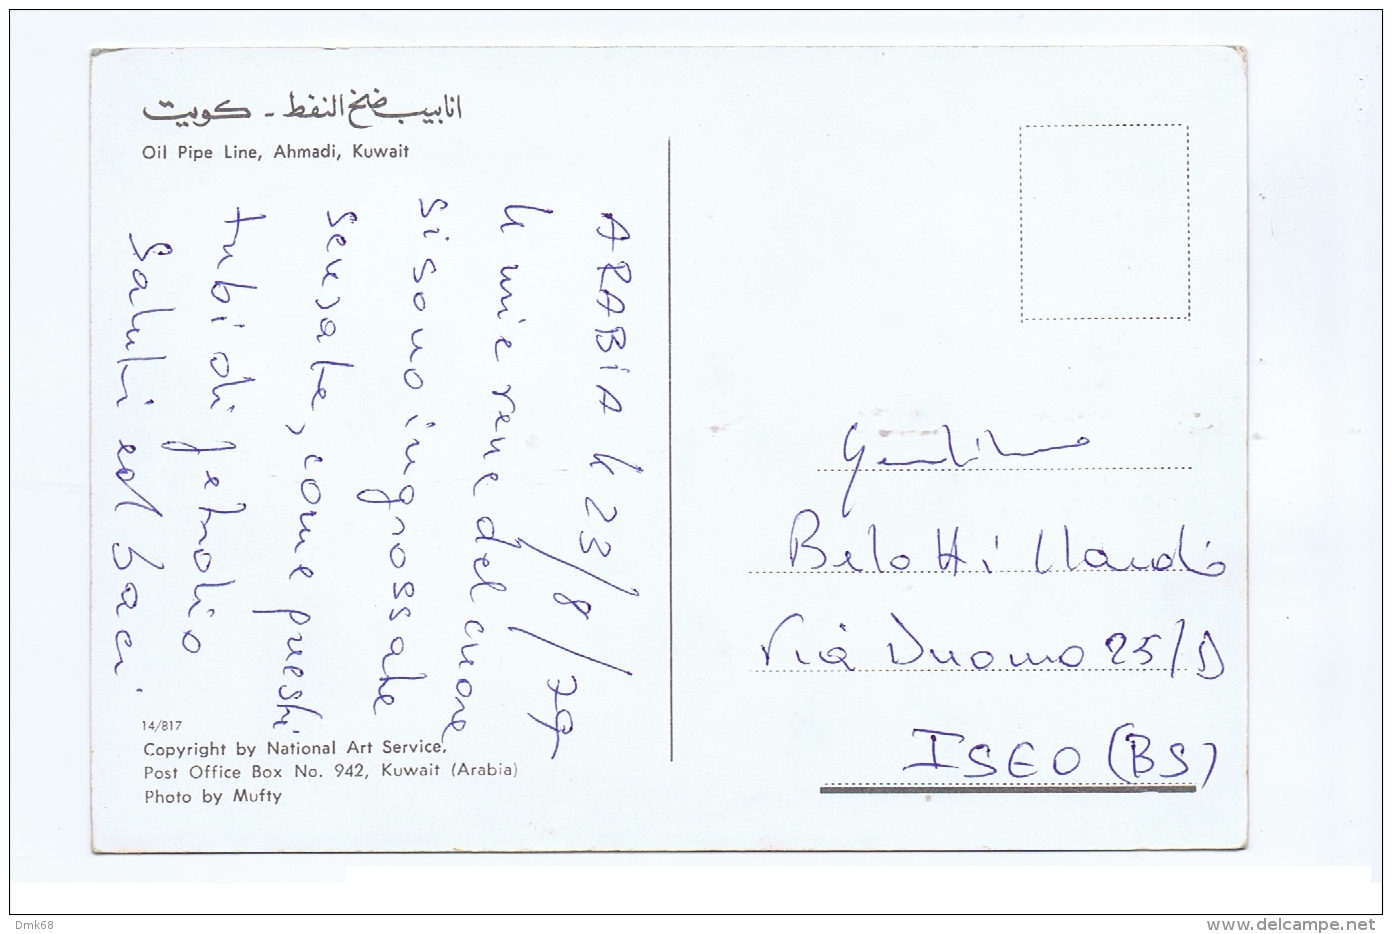 انابيب ضخ النفط - كويت
Oil Pipe Line, Ahmadi, Kuwait
ARABIA li 23/8/79
Le mie vene del cuore
si sono ingrossate
sensate, come questi
tubi di petrolio
Saluti ed baci.
14/817
Copyright by National Art Service,
Post Office Box No. 942, Kuwait (Arabia)
Photo by Mufty
Belotti Claudio
Via Duomo 25/D
ISEO (BS)
Dmk68
www.delcampe.net